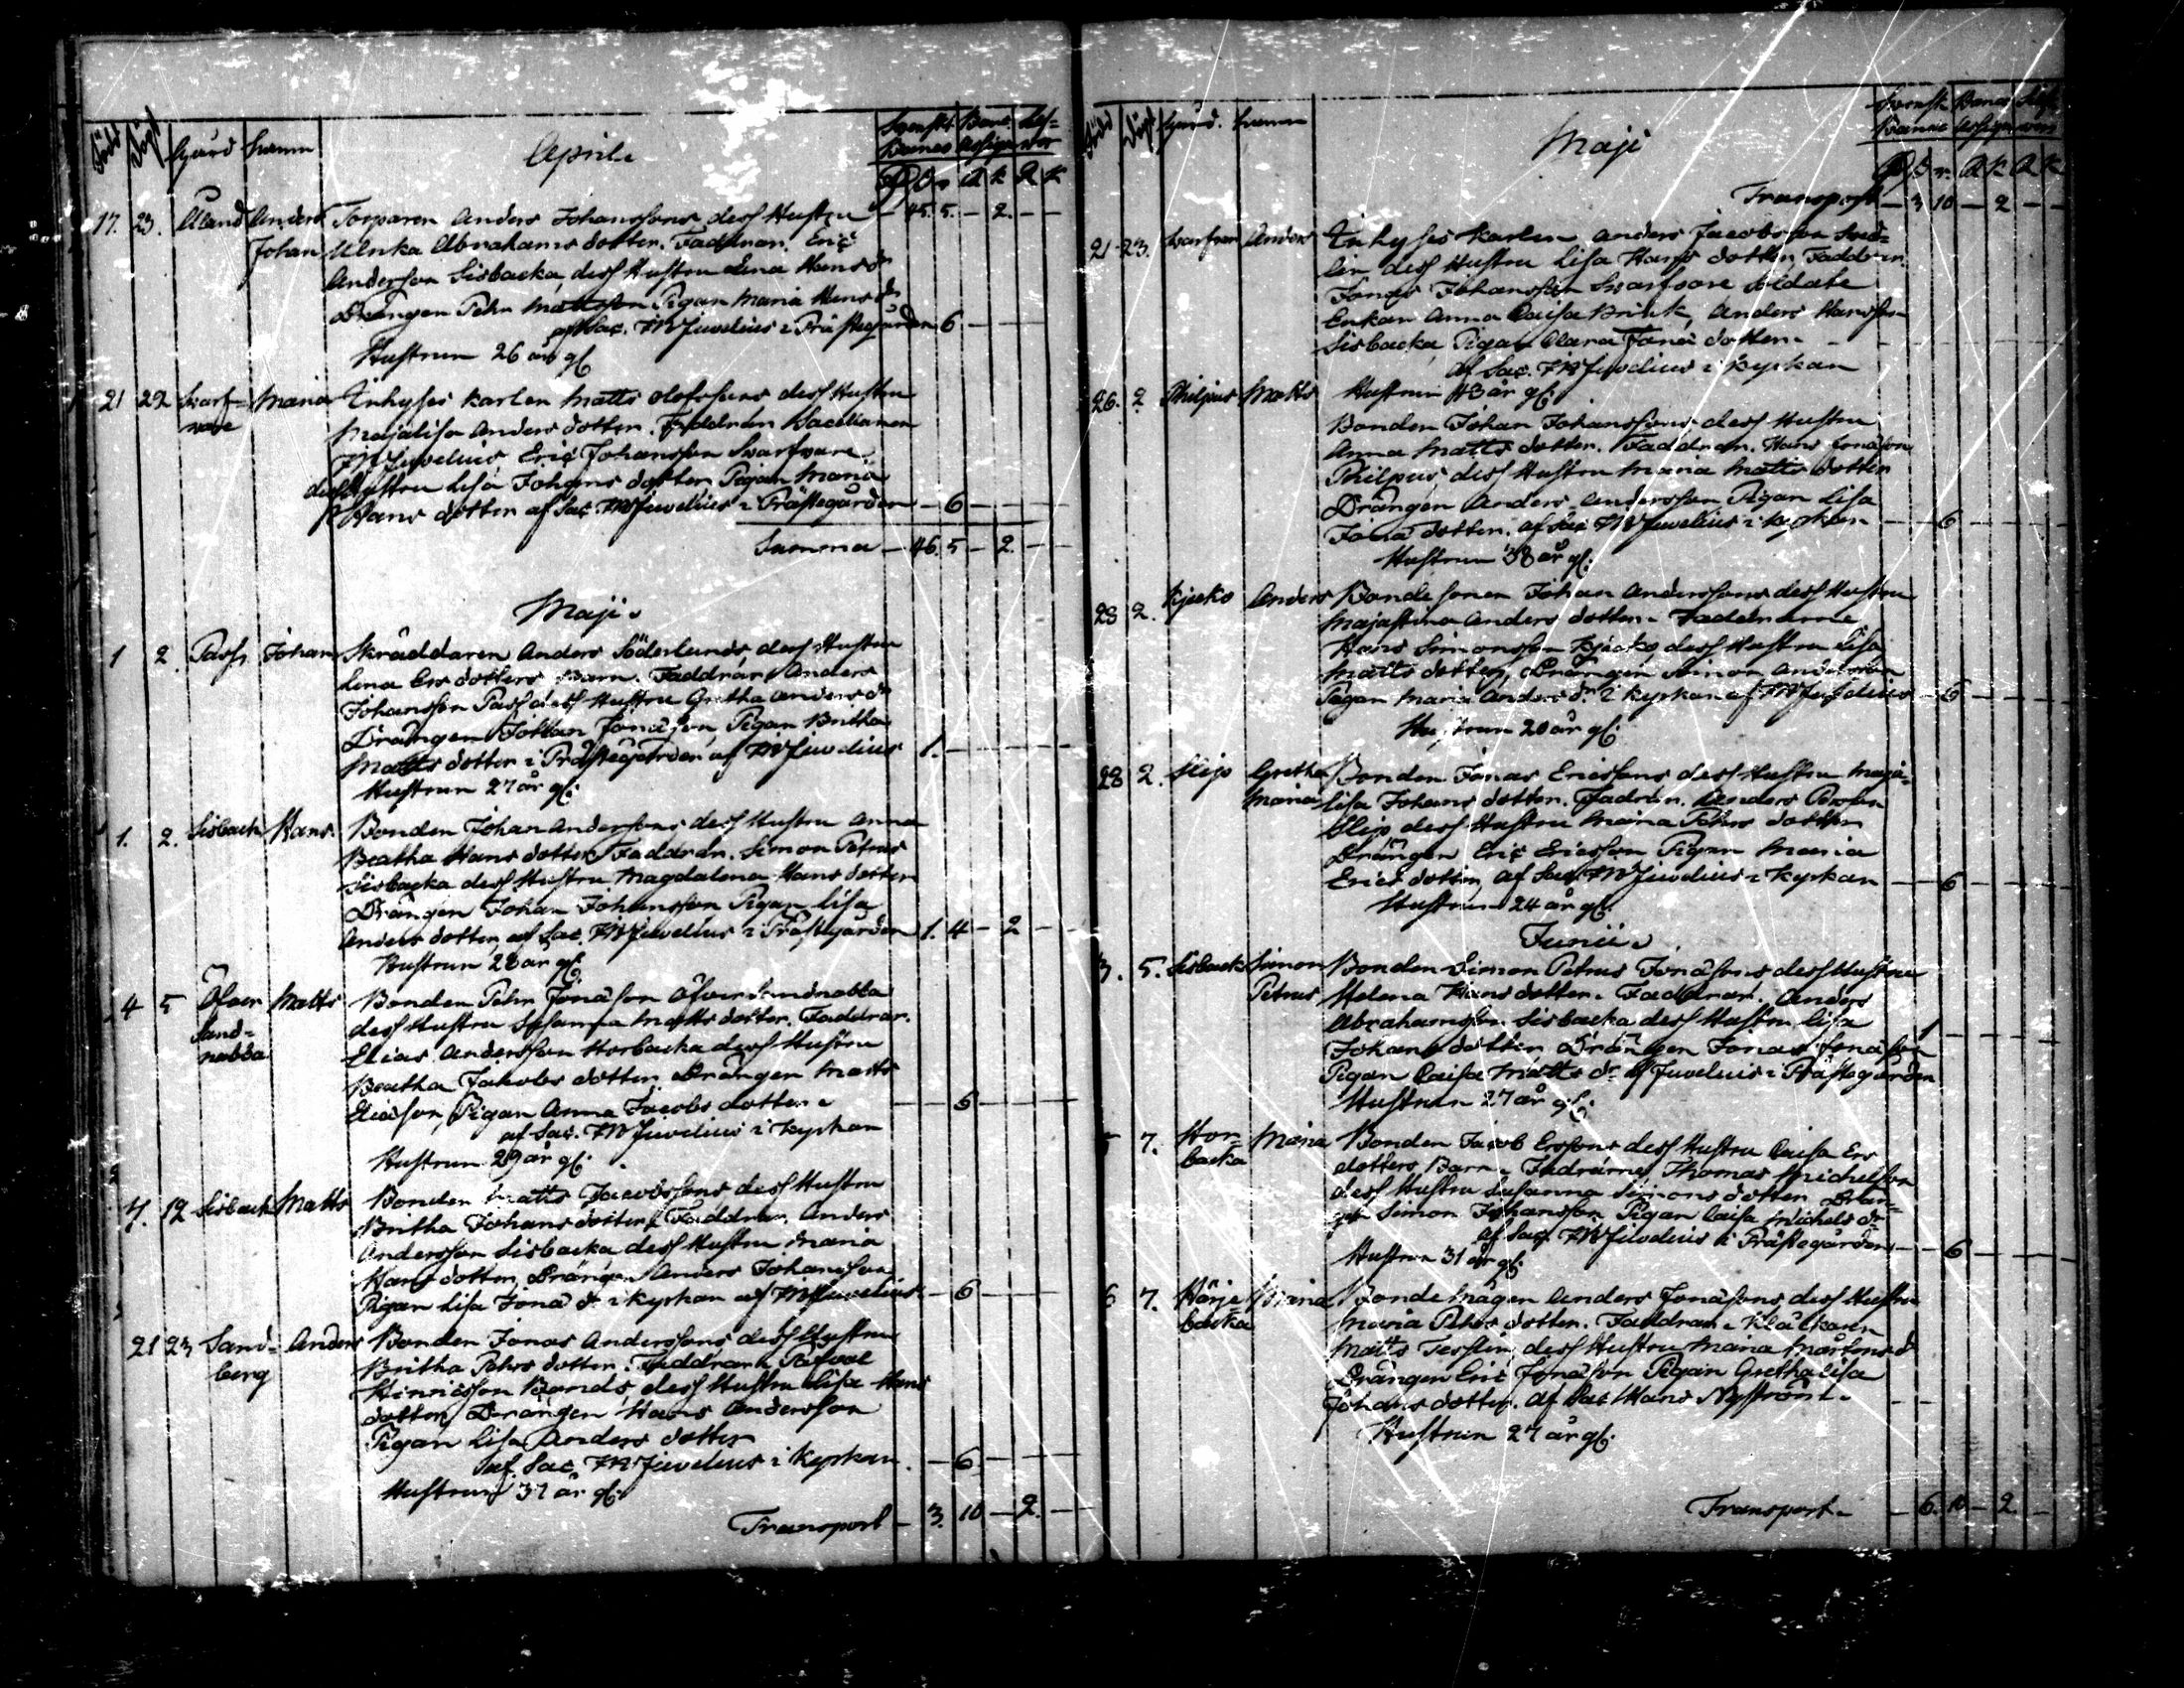 Född Döpt Gård Namn April Svenskt Banco Assignater
17. 23. Åland Anders Torparen Anders Johanssons dess Hustru – 45. 5. – 2. – –
Johan Ulrika Abrahams dotter. Faddrar. Eric
Andersson Sisbacka, dess Hustru Lena Hans dr
Drängen Pehr Mattsson Pigan Maria Hans dr
af Sac. FW Juvelius i Prästegården 6 – – –
Hustrun 26 år gl
21 22 Svarf- Maria Inhyses karlen Matts Olofssons dess Hustru
vare Majalisa Anders dotter. Faddrar Sacellanen
FW Juvelius Eric Johansson Svarfvare
dess Hustru Lisa Johans dotter Pigan Maria
Hans dotter af Sac. FW Juvelius i Prästegården – 6 – – –
Summa – 46. 5 – 2. – –
Maji.
1 2. Pass Johan Skräddaren Anders Söderlunds dess Hustru
Lena Ers dotters Barn. Faddrar Anders
Johansson Pass dess Hustru Gretha Anders dr
Drängen Johan Jonasson Pigan Britha
Matts dotter i Prästegården af FW Juvelius 1. – – –
Hustrun 27 år gl.
1. 2. Sisback Hans Bonden Johan Anderssons dess Hustru Anna
Beatha Hans dotter Faddrar. Simon Petrus
Sisbacka dess Hustru Magdalena Hans dotter
Drängen Johan Johansson Pigan Lisa
Anders dotter af Sac. FW Juvelius i Prästegården 1. 4 – 2 – –
Hustrun 28 år gl.
4 5 Öfver Matts Bonden Pehr Jonasson Öfversandnabba
Sand- dess Hustru Susanna Matts dotter. Faddrar.
nabba Elias Andersson Horbacka dess Hustru
Beatha Jakobs dotter Drängen Matts
Eliasson, Pigan Anna Jacobs dotter – – 6 – – –
af Sac. FW Juvelius i Kyrkan
Hustrun 29 år gl.
7. 12 Sisback Matts Bonden Matts Jacobssons dess Hustru
Britha Johans dotter, Faddrar. Anders
Andersson Sisbacka dess Hustru Maria
Hans dotter, Drängen Anders Johansson
Pigan Lisa Jona dr i Kyrkan af FW Juvelius – 6 – – –
21 23 Sand- Anders Bonden Jonas Anderssons dess Hustru
berg Britha Pehrs dotter. Faddrar
Henricsson Bonde dess Hustru Lisa Hans
dotter, Drängen Hans Andersson
Pigan Lisa Anders dotter
af Sac. FW Juvelius i Kyrkan. – 6 – – –
Hustrun 37 år gl.
Transport – 3. 10 – 2. –
Född Döpt Gård. Namn Maji Svenskt Banco Assignater
Transport – 3 10 – 2 – –
21 23. Svarfvar Anders Inhyses karlen Anders Jacobsson
dess Hustru Lisa Hans dotter, Faddrar.
Jonas Johansson Svarfvare Soldate
Enkan Anna Caisa Brink, Anders Hansson
Sisbacka Pigan Clara Jona dotter – – –
af Sac. FW Juvelius i Kyrkan
Hustrun 43 år gl.
26. 2 Philpus Matts Bonden Johan Johanssons dess Hustru
Anna Matts dotter. Faddrar. Hans Jonasson
Philpus, dess Hustru Maria Matts dotter
Drängen Anders Andersson Pigan Lisa
Jona dotter. af Sac FW Juvelius i Kyrkan – 6 – – –
Hustrun 38 år gl.
28 2. Kjecko Anders Bondesonen Johan Anderssons dess Hustru
Majastina Anders dotter. Faddrarne
Hans Simonsson Kjecko dess Hustru Lisa
Matts dotter, Drängen Simon Andersson
Pigan Maria Anders dr i Kyrkan af FW Juvelius – 6 – – –
Hustrun 20 år gl.
28 2. Slip Gretha Bonden Jonas Ericssons dess Hustru Maja-
Maria lisa Johans dotter. Faddrar. Anders Persson
Slip dess Hustru Maria Pehrs dotter
Drängen Eric Ericsson Pigan Maria
Erics dotter, af Sac FW Juvelius i Kyrkan – 6 – – –
Hustrun 24 år gl.
Junii.
3. 5. Sisback Simon Bonden Simon Petrus Jonasons dess Hustru
Petrus Helena Hans dotter. Faddrar. Anders
Abrahamsson Sisbacka dess Hustru Lisa
Johans dotter Drängen Jonas Jonasson 1 – – –
Pigan Caisa Matts dr af Juvelius i Prästegården
Hustrun 27 år gl.
5 7. Hor- Maria Bonden Jacob Erssons dess Hustru Caisa Ers
backa dotters Barn. Faddrarne Thomas Michelsson
dess Hustru Susanna Simons dotter Drän-
gen Simon Johansson Pigan Caisa Michels dr
af Sac. FW Juvelius i Prästegården – 6 – – –
Hustrun 31 år gl.
6 7. Börje- Maria Bondemågen Anders Jonasons dess Hustru
backa Maria Pehrs dotter. Faddrar.
Matts dess Hustru Maria Mårtens d
Drängen Eric Jonasson Pigan Grethalisa
Johans dotter. af Sac Hans Nyström – – –
Hustrun 27 år gl.
Transport – 6. 10 – 2. –